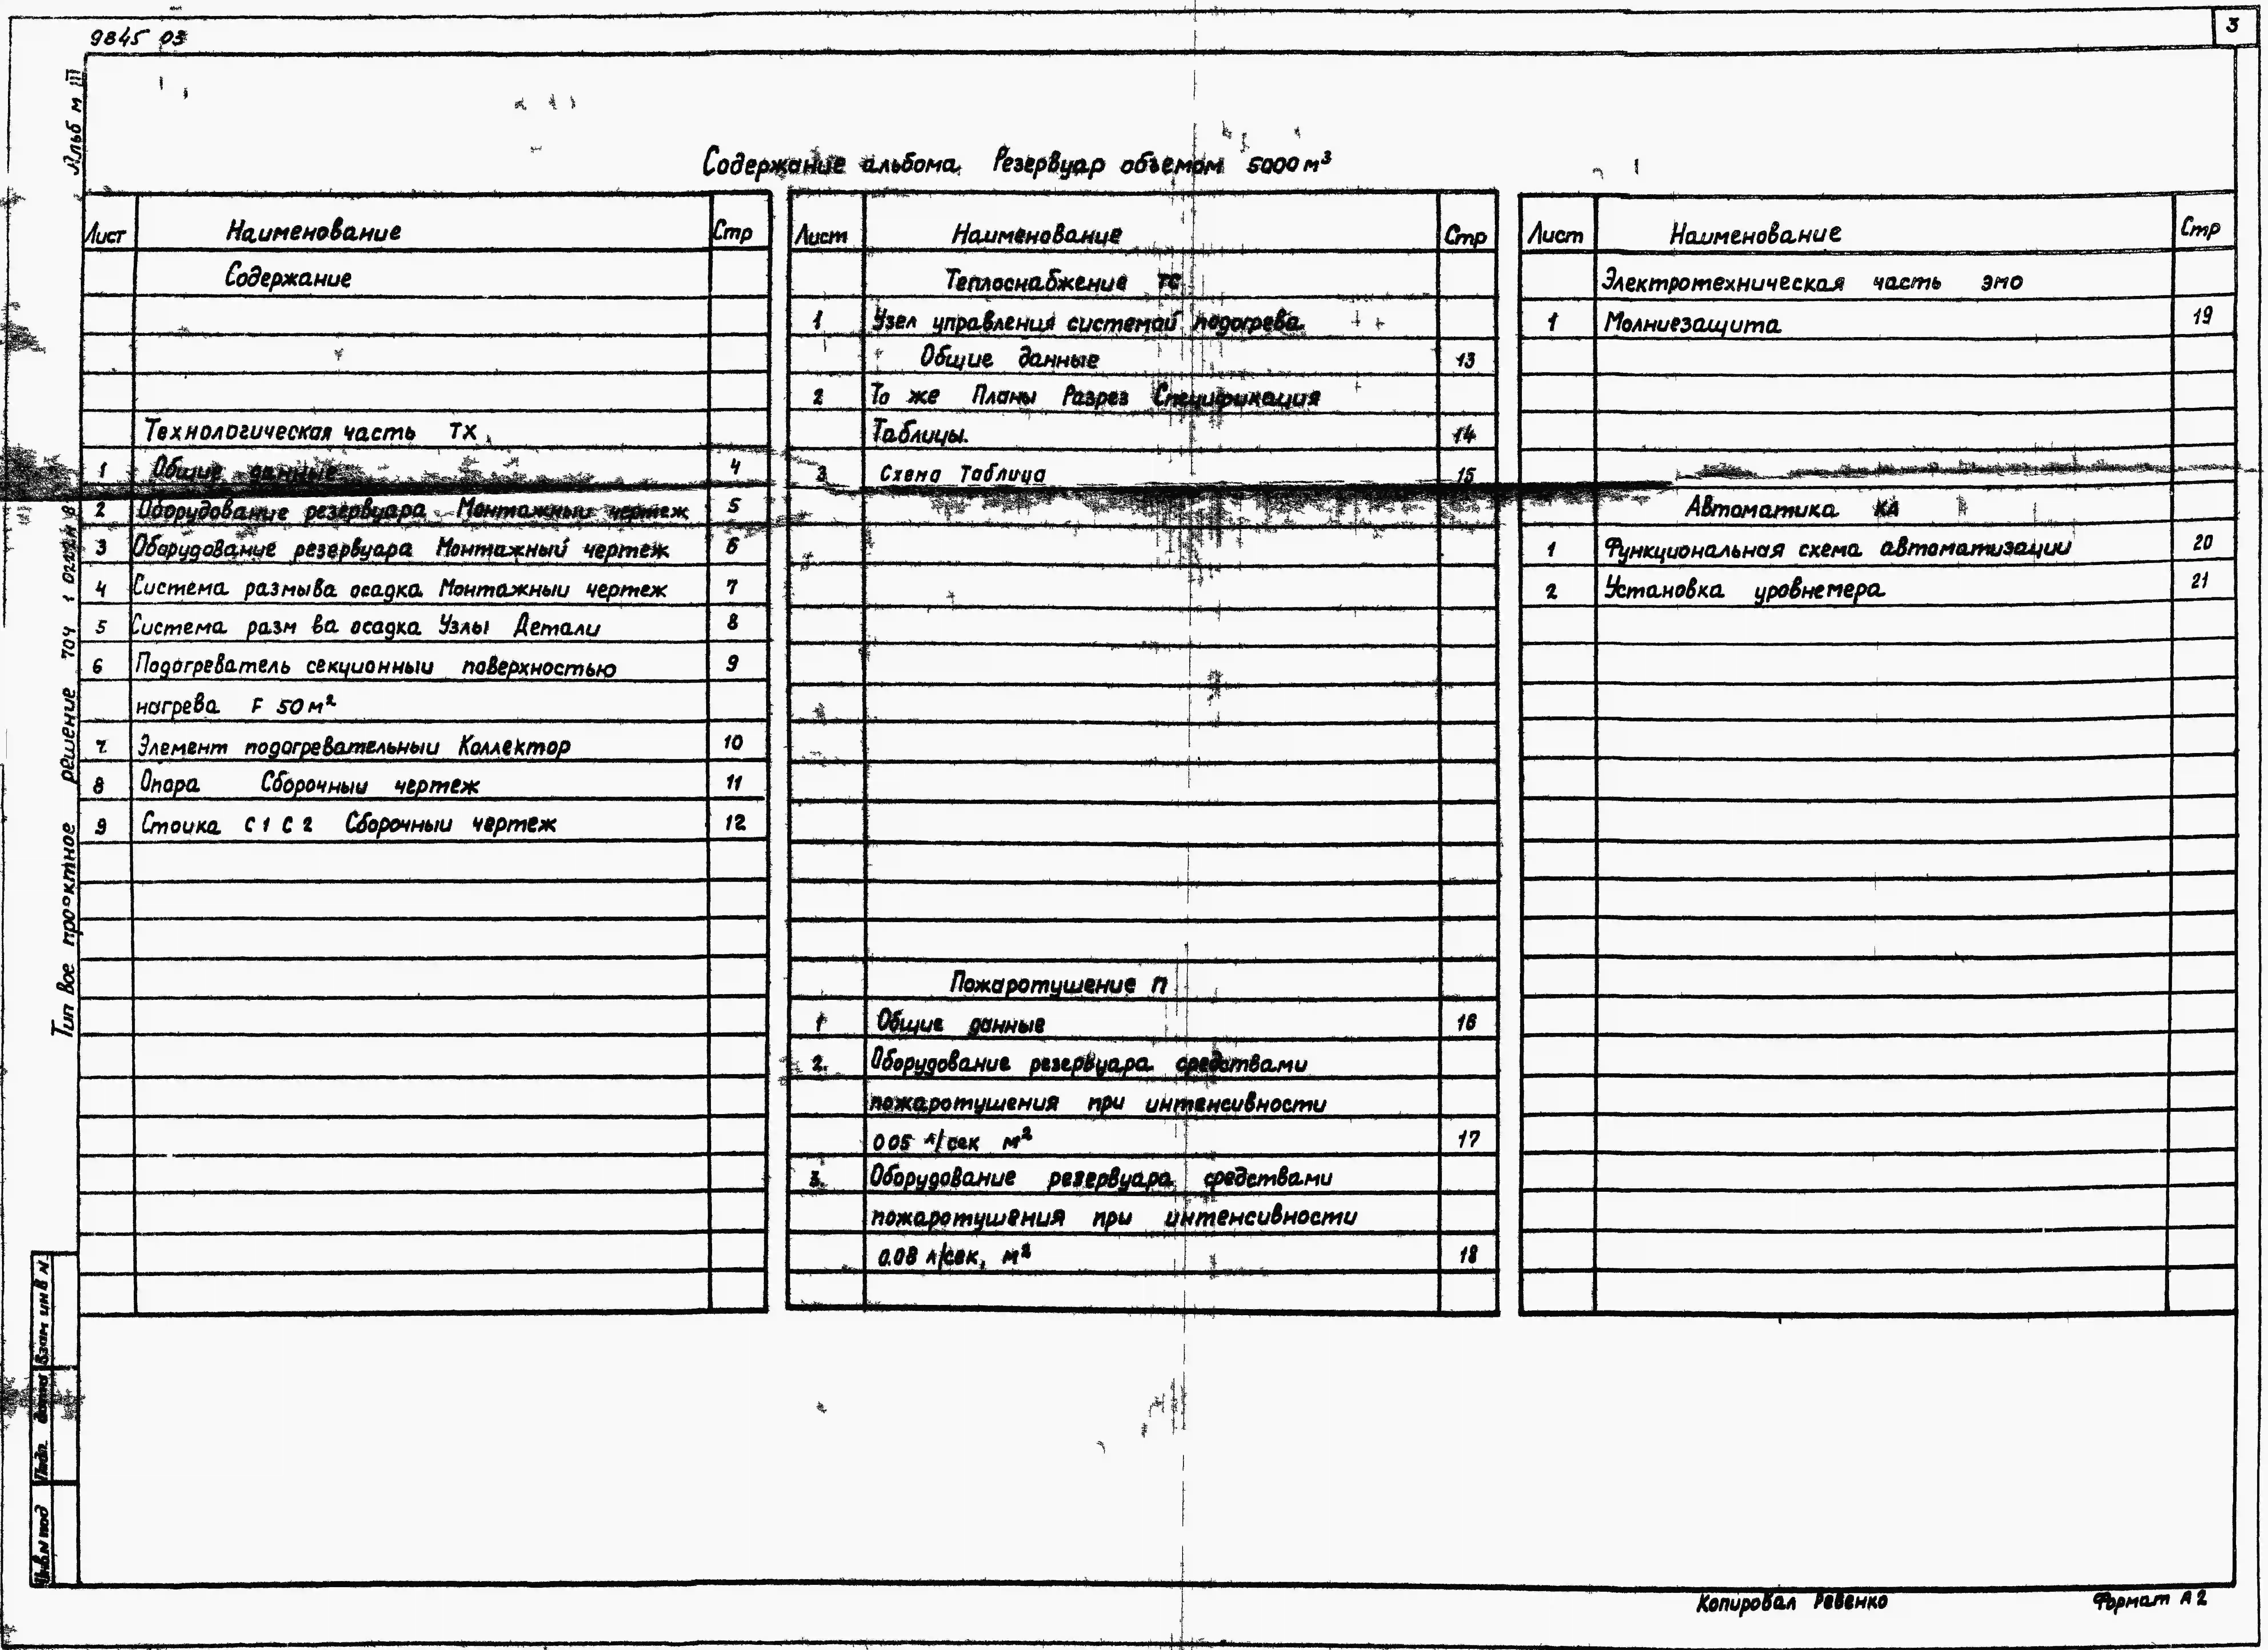 9845 03
3
Альб м III
Содержание альбома. Резервуар объемом 5000 м³
Лист Наименование Стр
Содержание
Технологическая часть ТХ
1 Общие данные 4
2 Оборудование резервуара Монтажныи чертеж 5
3 Оборудование резервуара Монтажный чертеж 6
4 Система размыва осадка Монтажныи чертеж 7
5 Система разм ва осадка Узлы Детали 8
6 Подогреватель секционныи поверхностью 9
нагрева F 50 м²
7 Элемент подогревательныи Коллектор 10
8 Опора Сборочныи чертеж 11
9 Стоика С1 С2 Сборочныи чертеж 12
Лист Наименование Стр
Теплоснабжение ТС
1 Узел управления системой подогрева
Общие данные 13
2 То же Планы Разрез Спецификация
Таблицы. 14
3 Схема Таблица 15
Пожаротушение П
1 Общие данные 16
2. Оборудование резервуара средствами
пожаротушения при интенсивности
0 05 л/сек м² 17
3. Оборудование резервуара средствами
пожаротушения при интенсивности
0.08 л/сек, м² 18
Лист Наименование Стр
Электротехническая часть ЭМО
1 Молниезащита 19
Автоматика КА
1 Функциональная схема автоматизации 20
2 Установка уровнемера 21
Тип вое проектное решение 704 1
Взам инв N
Подп. дата
Инв.N под
Копировал Ревенко
Формат А2